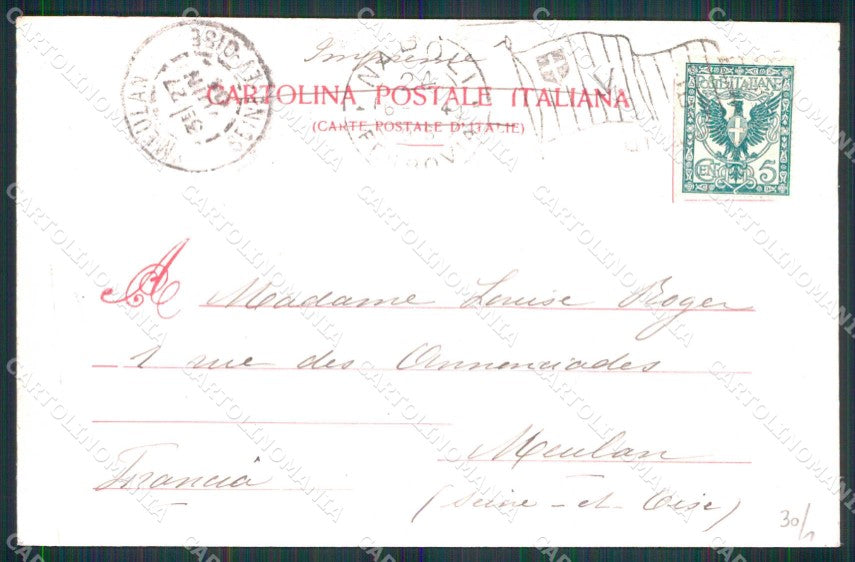 Imprimé
CARTOLINA POSTALE ITALIANA
(CARTE POSTALE D'ITALIE)
NAPOLI
FERROVIA
MEULAN
SEINE-ET-OISE
POSTE ITALIANE
CENT 5
A Madame Louise Roger
1 rue des Annonciades
Meulan
Francia
(Seine-et Oise)
30/1
CARTOLINOMANIA